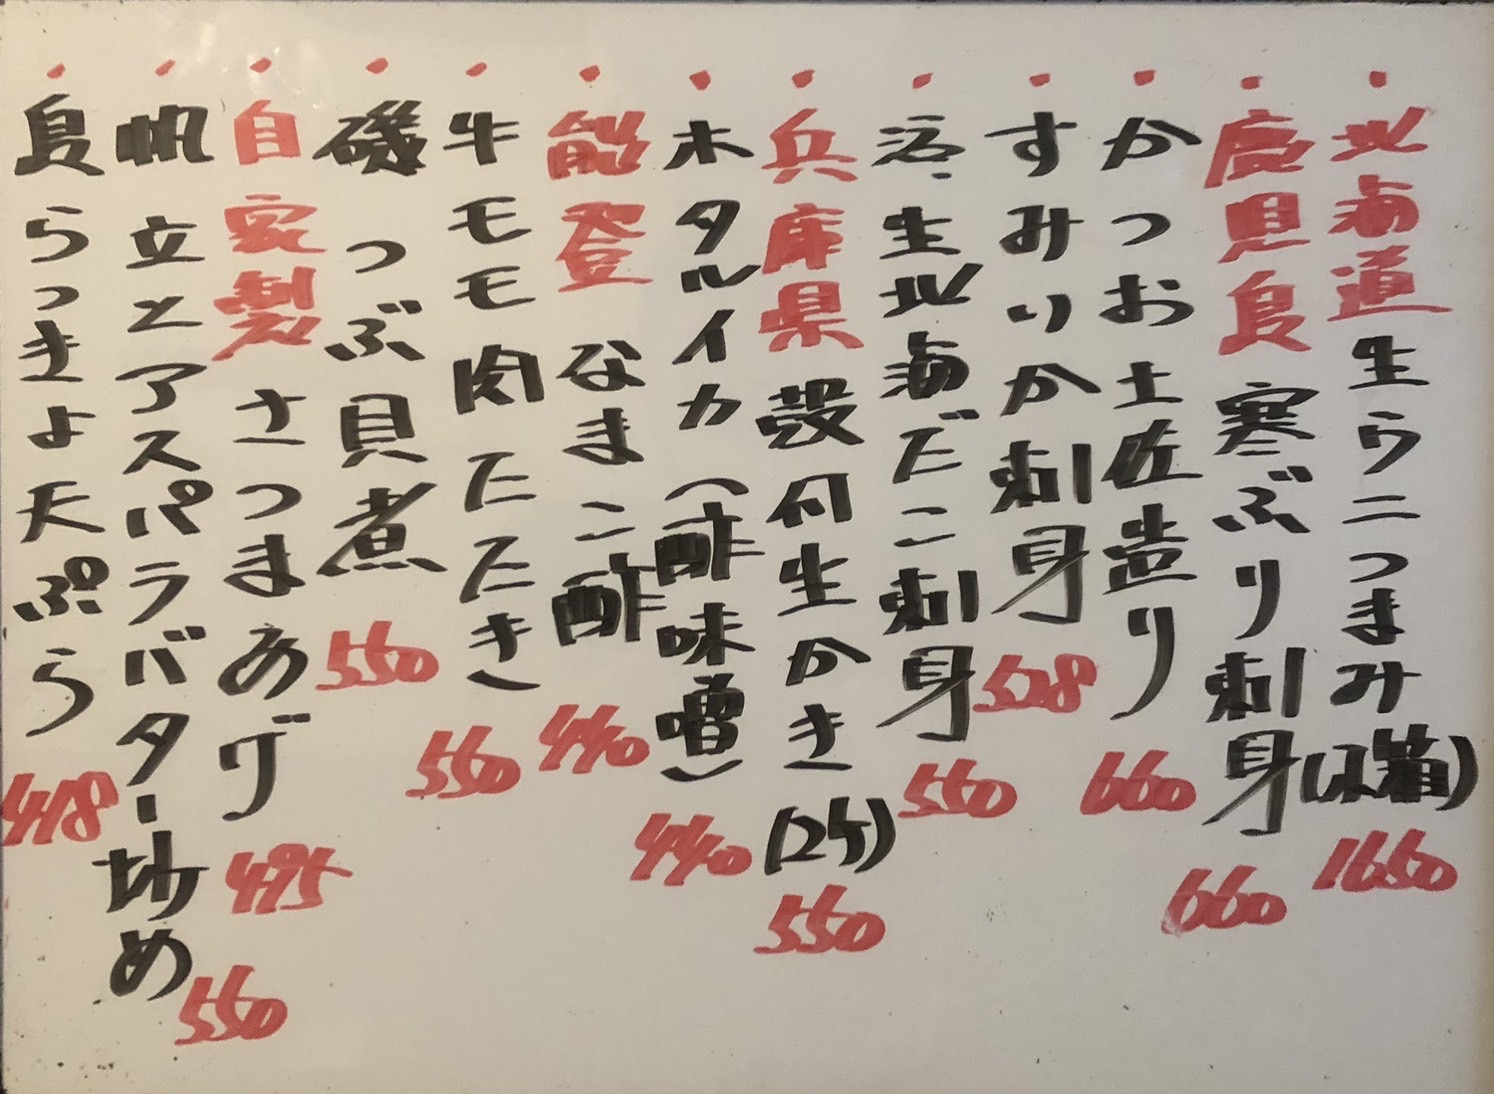 ・北海道生ウニつまみ(小箱) 1650
・鹿児島寒ぶり刺身 660
・かつお土佐造り 660
・すみいか刺身 528
・活〆生北海だこ刺身 550
・兵庫県殻付生かき(2ケ) 550
・ホタルイカ(酢味噌) 440
・能登なまこ酢 440
・牛モモ肉たたき 550
・磯つぶ貝煮 550
・自家製さつまあげ 495
・帆立とアスパラバター炒め 550
・島らっきょ天ぷら 418